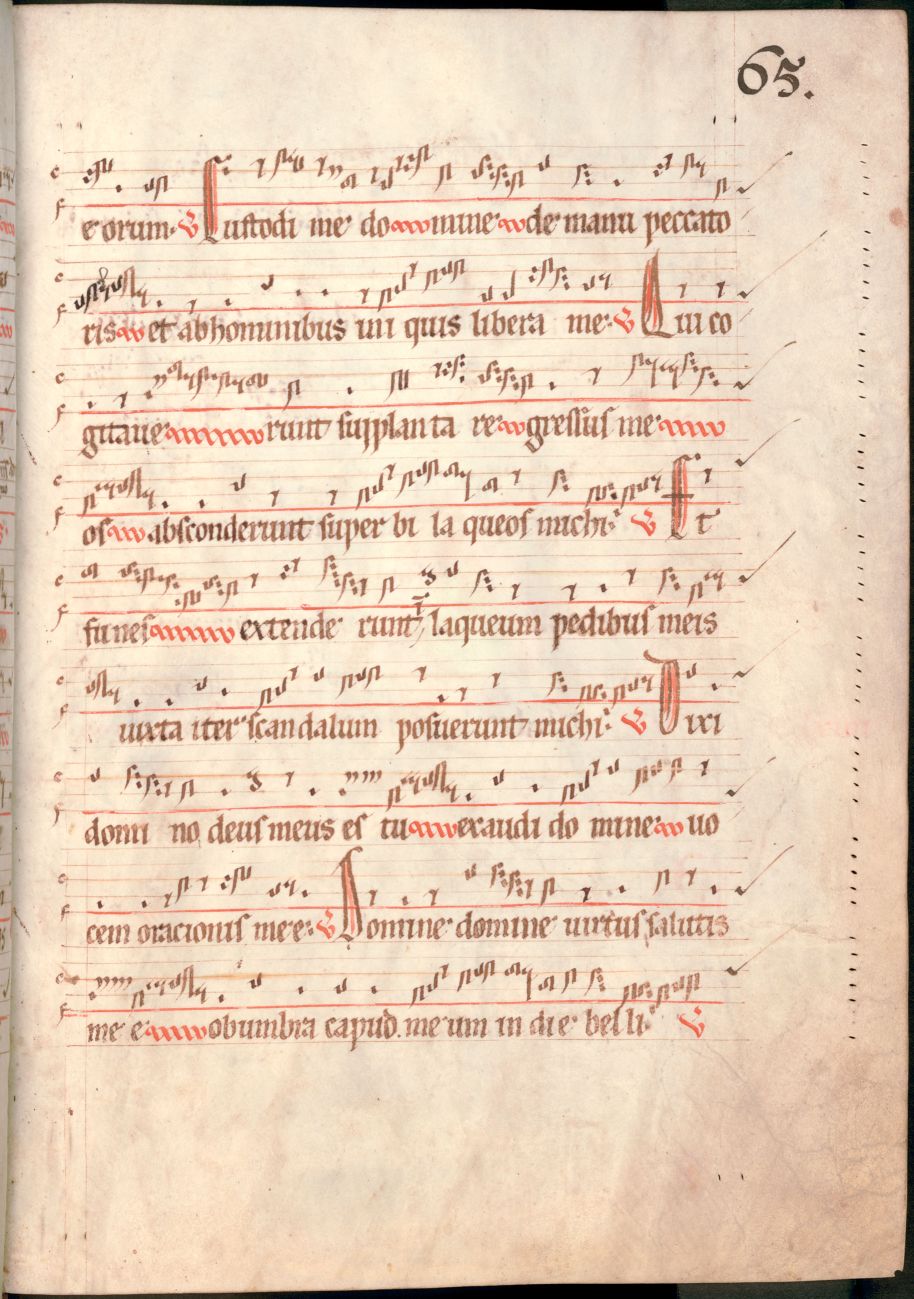 65.
e orum. V Custodi me do mine de manu peccato
ris et ab hominibus ini quis libera me. V Qui co
gitaue runt supplanta re gressus me
os absconderunt super bi la queos michi. V Et
funes extende runt laqueum pedibus meis
iuxta iter scandalum posuerunt michi. V Dixi
domi no deus meus es tu exaudi do mine uo
cem oracionis mee. V Domine domine uirtus salutis
me e obumbra capud. me um in die bel li. V